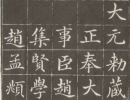 大元勅藏
正奉大
事臣趙
集賢學
趙孟頫